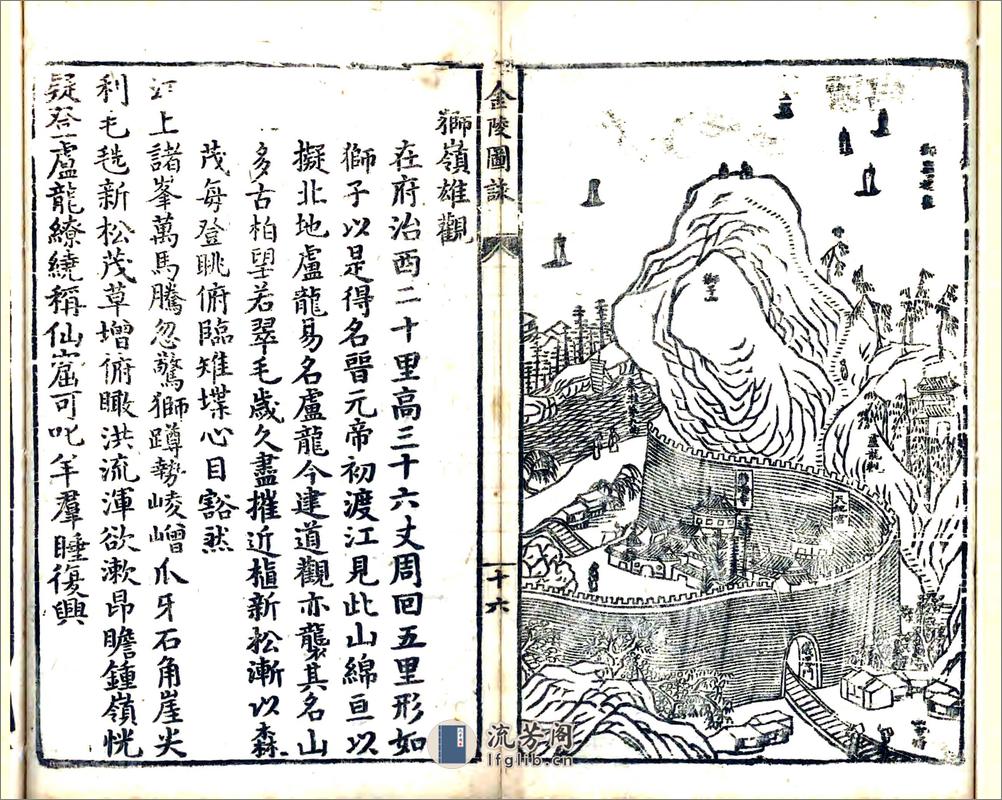 獅子山
盧龍觀
天妃宮
金陵圖詠
十六
獅嶺雄觀
在府治西二十里高三十六丈周回五里形如
獅子以是得名晉元帝初渡江見此山綿亘以
擬北地盧龍易名盧龍今建道觀亦襲其名山
多古柏望若翠毛歲久盡摧近植新松漸以森
茂每登眺俯臨雉堞心目豁然
江上諸峯萬馬騰忽驚獅蹲勢崚嶒爪牙石角崖尖
利毛毨新松茂草增俯瞰洪流渾欲漱昂瞻鍾嶺恍
疑荅盧龍繚繞稱仙窟可叱羊羣睡復興
流芳阁
lfglib.cn